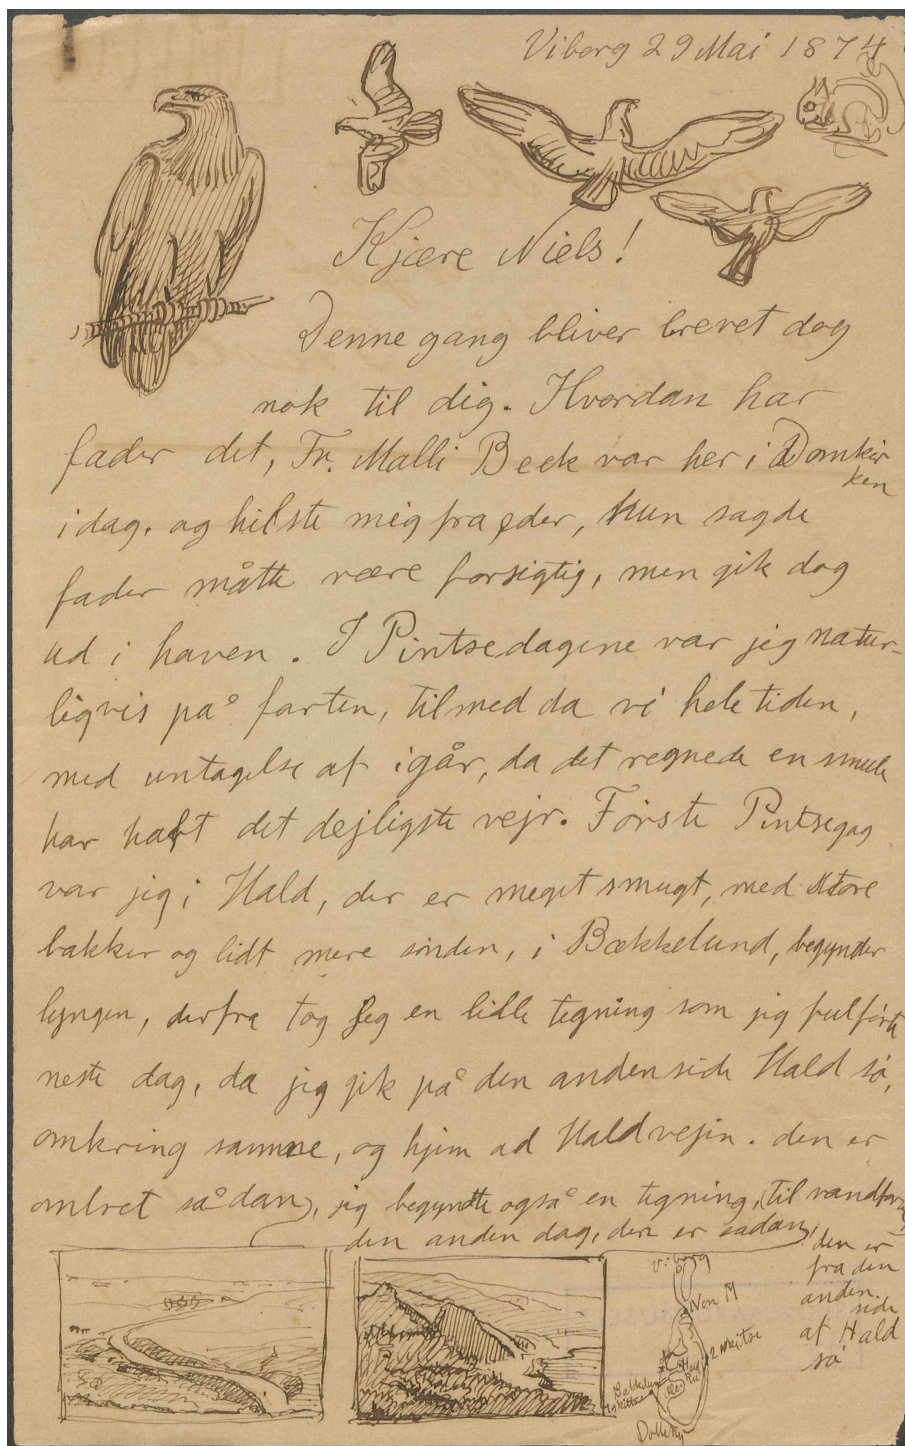 Viborg 29 Mai 1874
Kjære Niels!
Denne gang bliver brevet dog
nok til dig. Hvordan har
fader det, Fr. Malli Beck var her i Domkir
ken
idag. og hilste mig fra eder, hun sagde
fader måtte være forsigtig, men gik dog
ud i haven. I Pintsedagene var jeg natur-
ligvis på farten, tilmed da vi hele tiden,
med untagelse af igår, da det regnede en smule
har haft det dejligste vejr. Förste Pintsegag
var jeg i Hald, der er meget smugt, med store
bakker og lidt mere sönden, i Bækkelund, begynder
lyngen, derfra tog jeg en lille tegning som jeg fulförte
neste dag, da jeg gik på den anden side Hald sö,
omkring samme, og hjem ad Haldvejen. den er
omtret sådan, jeg begyndte også en tegning, til vandfarve
den anden dag, den er sadan,
den er
fra den
anden.
side
af Hald
sö
Viborg
Non M
Hald
Bækkelund
Dollerup